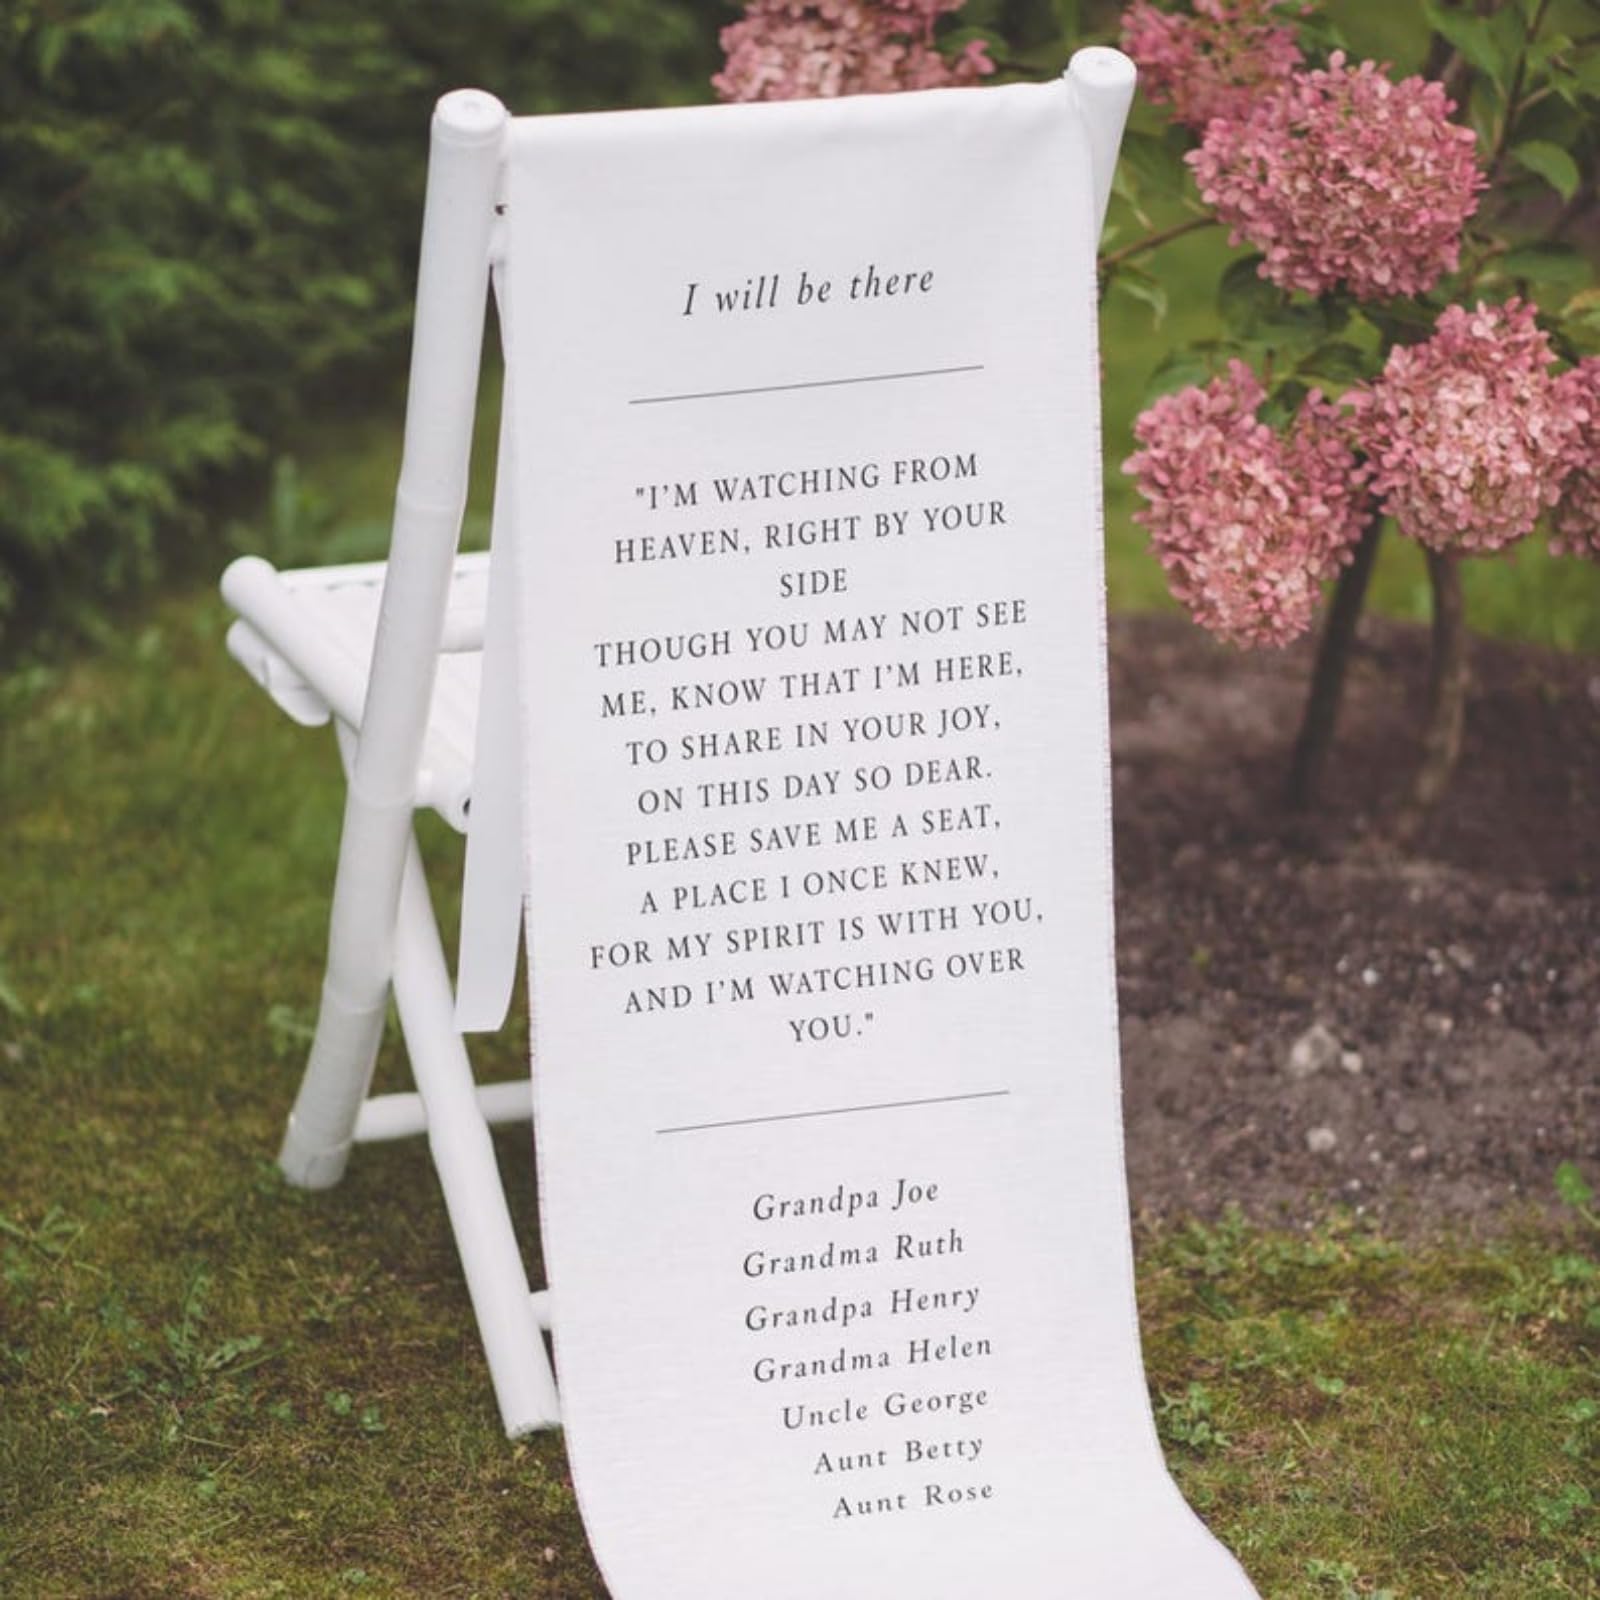 I will be there
"I’M WATCHING FROM
HEAVEN, RIGHT BY YOUR
SIDE
THOUGH YOU MAY NOT SEE
ME, KNOW THAT I’M HERE,
TO SHARE IN YOUR JOY,
ON THIS DAY SO DEAR.
PLEASE SAVE ME A SEAT,
A PLACE I ONCE KNEW,
FOR MY SPIRIT IS WITH YOU,
AND I’M WATCHING OVER
YOU."
Grandpa Joe
Grandma Ruth
Grandpa Henry
Grandma Helen
Uncle George
Aunt Betty
Aunt Rose